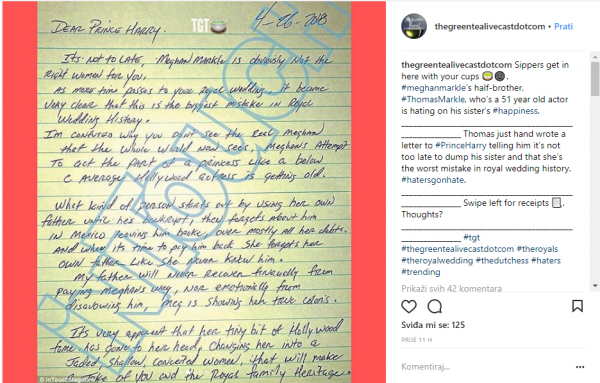 TGT
4-26-2018
DEAR PRINCE HARRY.
It's not to LATE, Meghan Markle is obviously Not the
Right women for you.
As more time passes to your Royal Wedding, it became
very clear that this is the biggest mistake in Royal
Wedding History.
I'm confused why you don't see the Real Meghan
that the whole world now sees. Meghan's Attempt
To act the Part of a princess Like a below
C Average Hollywood actress is getting old.
What kind of person starts out by using her own
father until he's bankrupt, then forgets about him
IN Mexico leaving him broke, over mostly all her debts.
And when it's time to pay him back She forgets her
own father Like She Never Knew him.
My father will Never Recover financially from
paying Meghan's way, Nor emotionally from
disavowing him, Meg is showing her true colors.
It's very apparent that her tiny bit of Hollywood
fame has gone to her head, Changing her into a
Jaded, Shallow, conceited women, that will make
a Joke of you and the Royal family Heritage.
InTouch
© InTouch Magazine
thegreentealivecastdotcom • Prati
thegreentealivecastdotcom Sippers get in
here with your cups 🍵
#meghanmarkle's half-brother,
#ThomasMarkle, who's a 51 year old actor
is hating on his sister's #happiness.
Thomas just hand wrote a
letter to #PrinceHarry telling him it's not
too late to dump his sister and that she's
the worst mistake in royal wedding history.
#hatersgonhate.
Swipe left for receipts 🧾.
Thoughts?
#tgt
#thegreentealivecastdotcom #theroyals
#theroyalwedding #thedutchess #haters
#trending
Prikaži svih 42 komentara
Sviđa mi se: 125
PRIJE 11 H
Komentiraj...